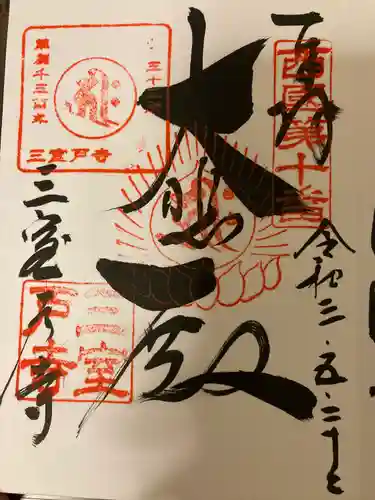 奉拝
西国第十番
令和三・五・二十七
大悲殿
草創千三百年
三室戸寺
三室戸寺
三室戸寺